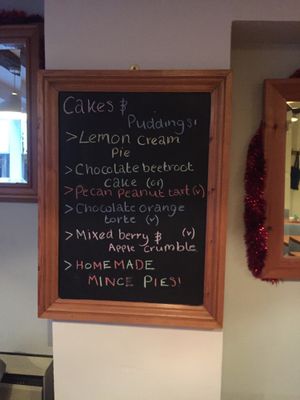 Cakes &
Puddings!
> Lemon Cream
Pie
> Chocolate beetroot
cake (GF)
> Pecan Peanut tart (v)
> Chocolate orange
torte (v)
> Mixed berry & (v)
Apple Crumble
> HOMEMADE
MINCE PIES!